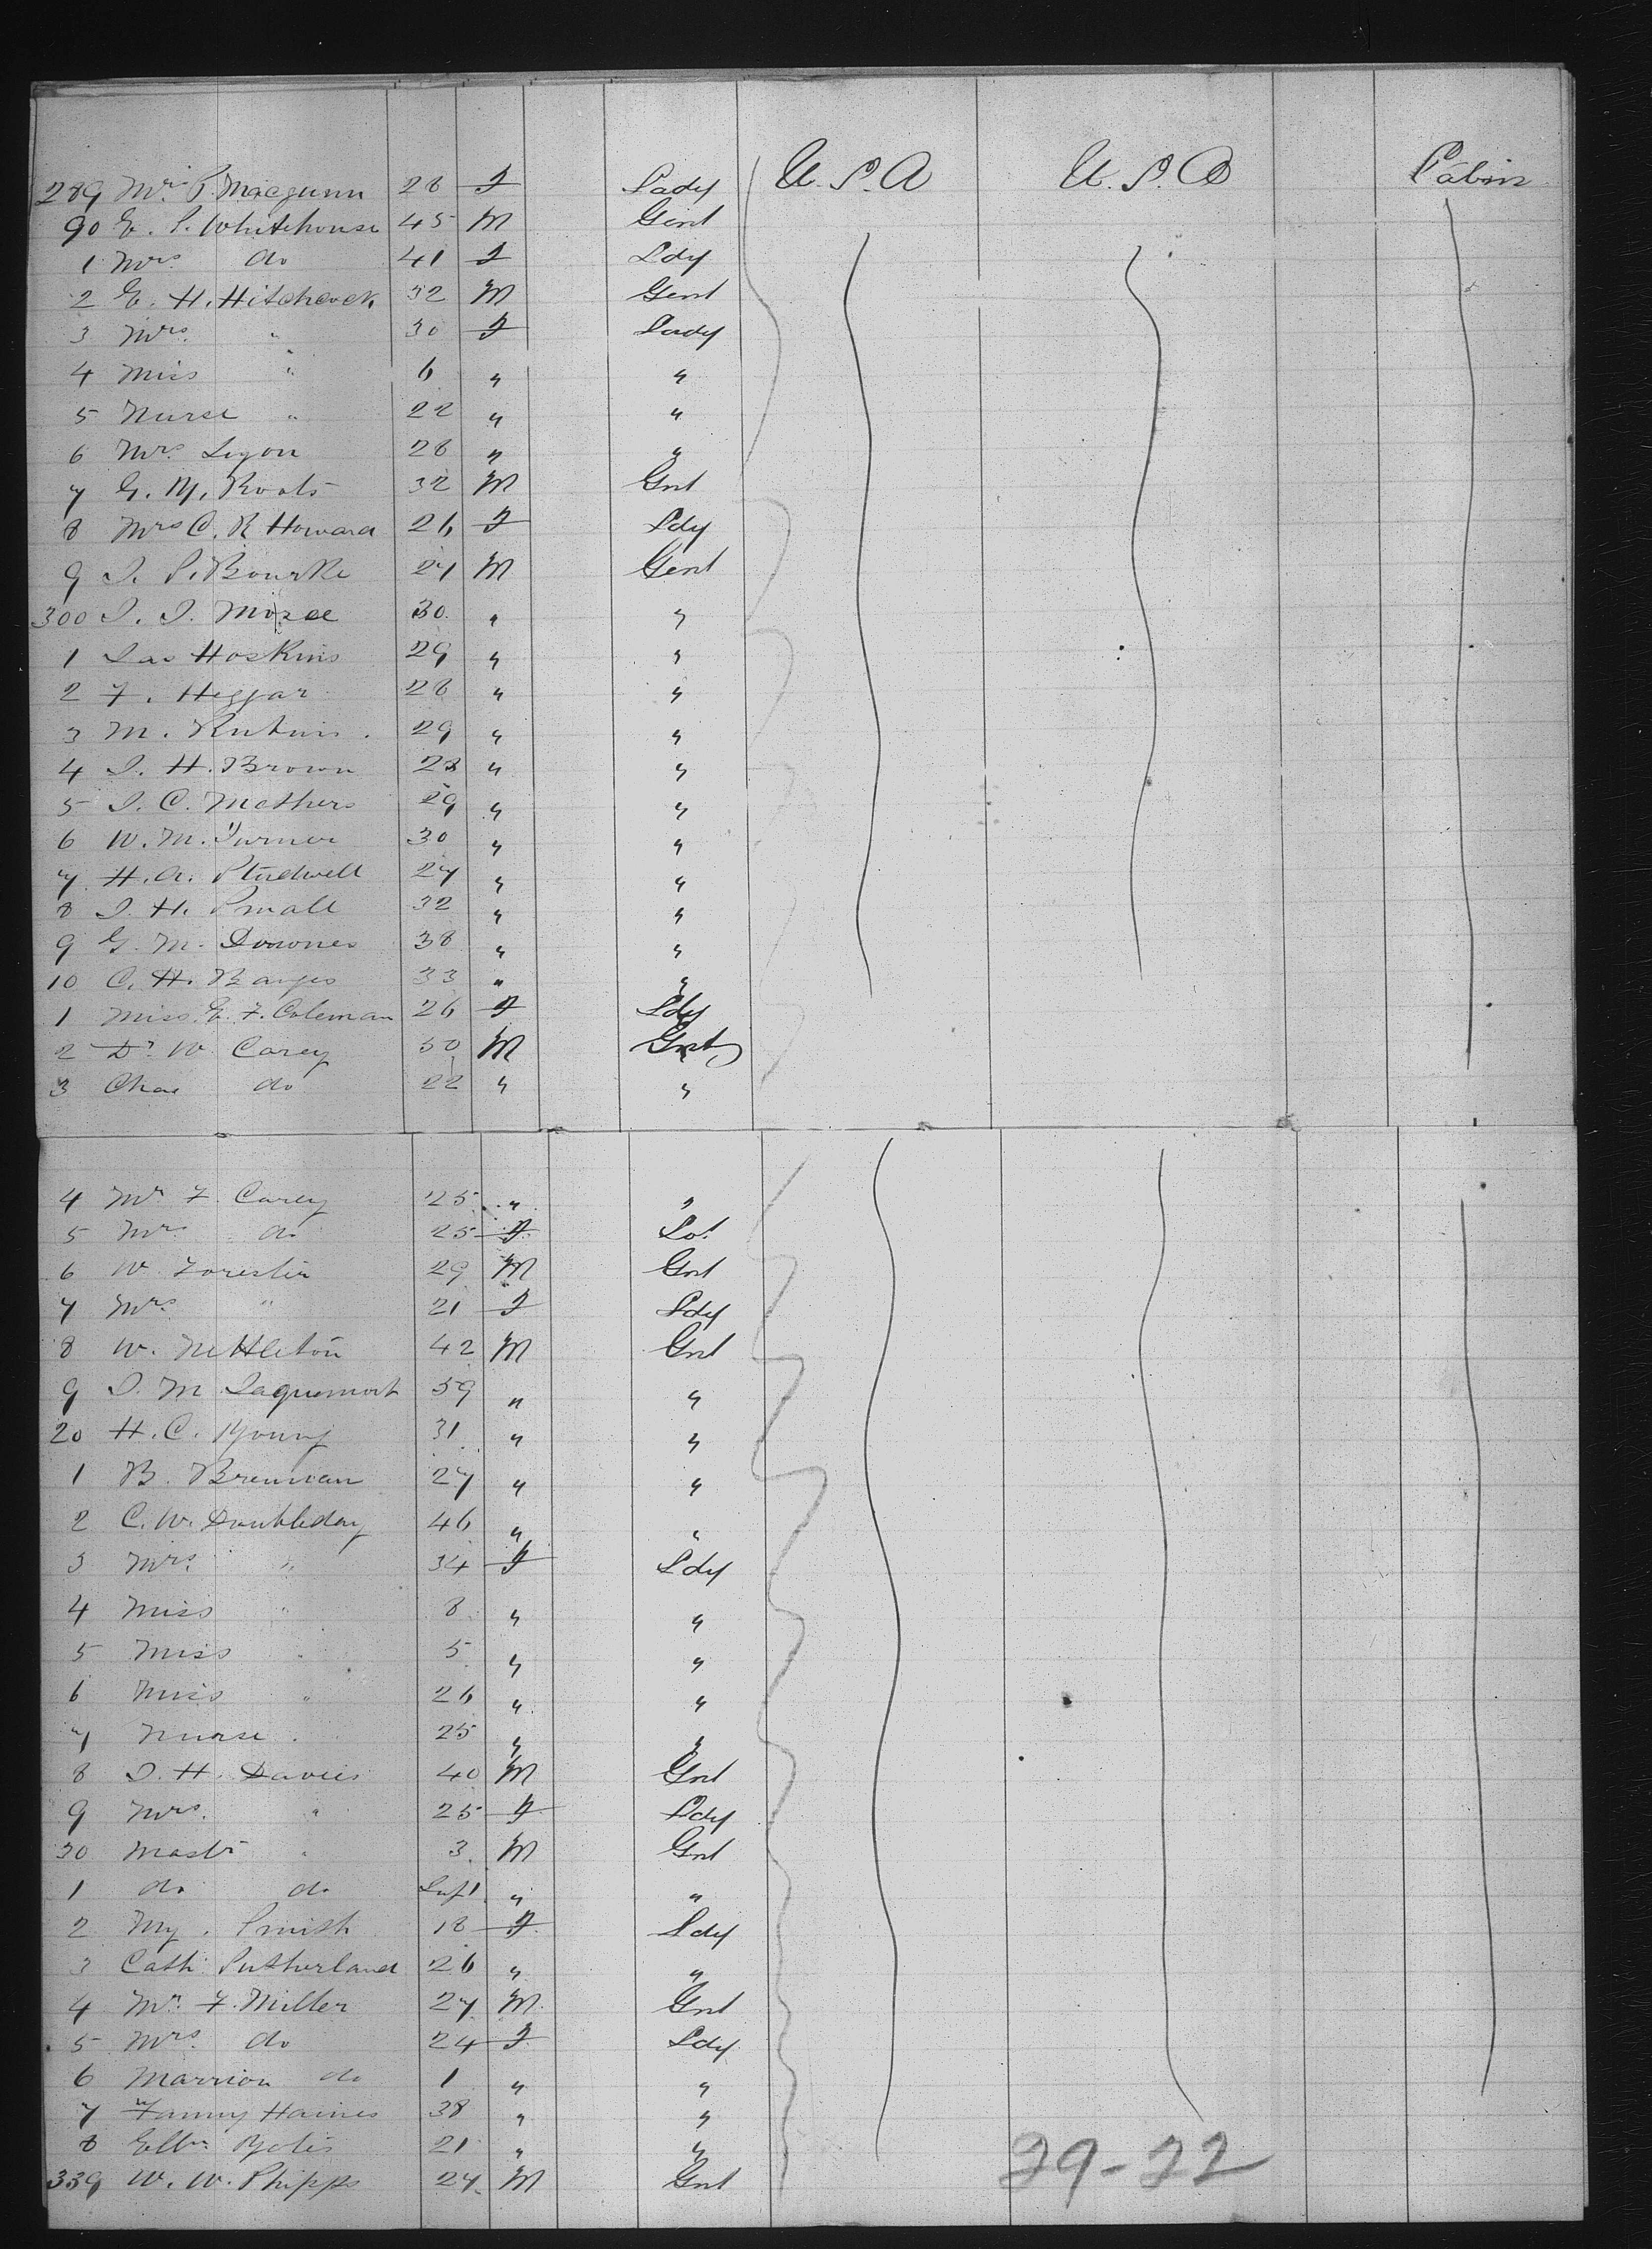 289 Mrs P. Macgunn 28 F Lady U.S.A U.S.A Cabin
90 E. S. Whitehouse 45 M Gent
1 Mrs do 41 F Ldy
2 E. H. Hitchcock 32 M Gent
3 Mrs. " 30 F Lady
4 Miss " 6 " "
5 Nurse " 22 " "
6 Mrs Lyon 28 " "
7 G. M. Roots 32 M Gnt
8 Mrs C. R Howard 26 F Ldy
9 J. P. Bourke 27 M Gent
300 J. J. 30 " "
1 Jas Hoskins 29 " "
2 F. Heggar 28 " "
3 M. 29 " "
4 J. H. Brown 28 " "
5 J. C. Mathers 29 " "
6 W. M. Turner 30 " "
7 H. A. Studwell 27 " "
8 J. H. Small 32 " "
9 G. M. Downes 38 " "
10 C. H. 33 " "
1 Miss E. F. Coleman 26 F Ldy
2 Dr W Carey 50 M Gnt
3 Chas do 22 " "
4 Mr F. Carey 25 " "
5 Mrs do 25 F
6 W Forester 29 M Gnt
7 Mrs " 21 F Ldy
8 W. Nettleton 42 M Gnt
9 J. M Jaquemort 59 " "
20 H. C. Young 31 " "
1 B. Brennan 27 " "
2 C. W. Doubleday 46 " "
3 Mrs " 34 F Ldy
4 Miss " 8 " "
5 Miss " 5 " "
6 Miss " 26 " "
7 Nurse " 25 " "
8 J. H. Davies 40 M Gnt
9 Mrs. " 25 F Ldy
30 Mastr " 3 M Gnt
1 do do Inft " "
2 My. Smith 18 F Ldy
3 Cath Sutherland 26 " "
4 Mr. F. Miller 27 M Gnt
5 Mrs do 24 F Ldy
6 Marrion do 1 " "
7 Fanny Haines 38 " "
8 21 " "
339 W. W. Phipps 27 M Gnt
29-22